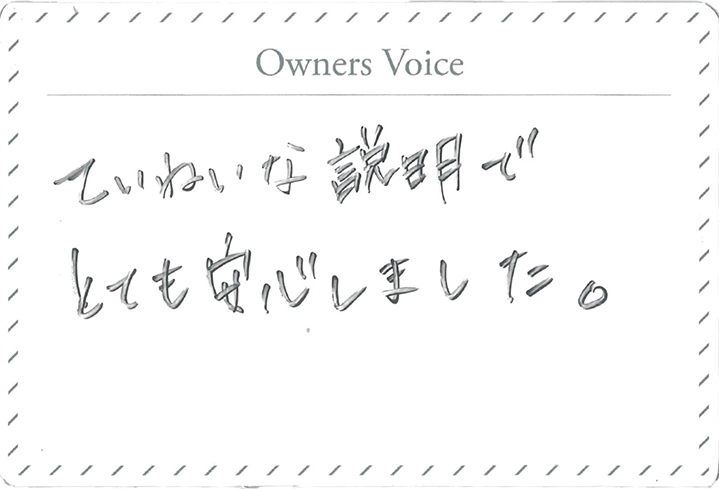 Owners Voice
ていねいな説明で
とても安心しました。